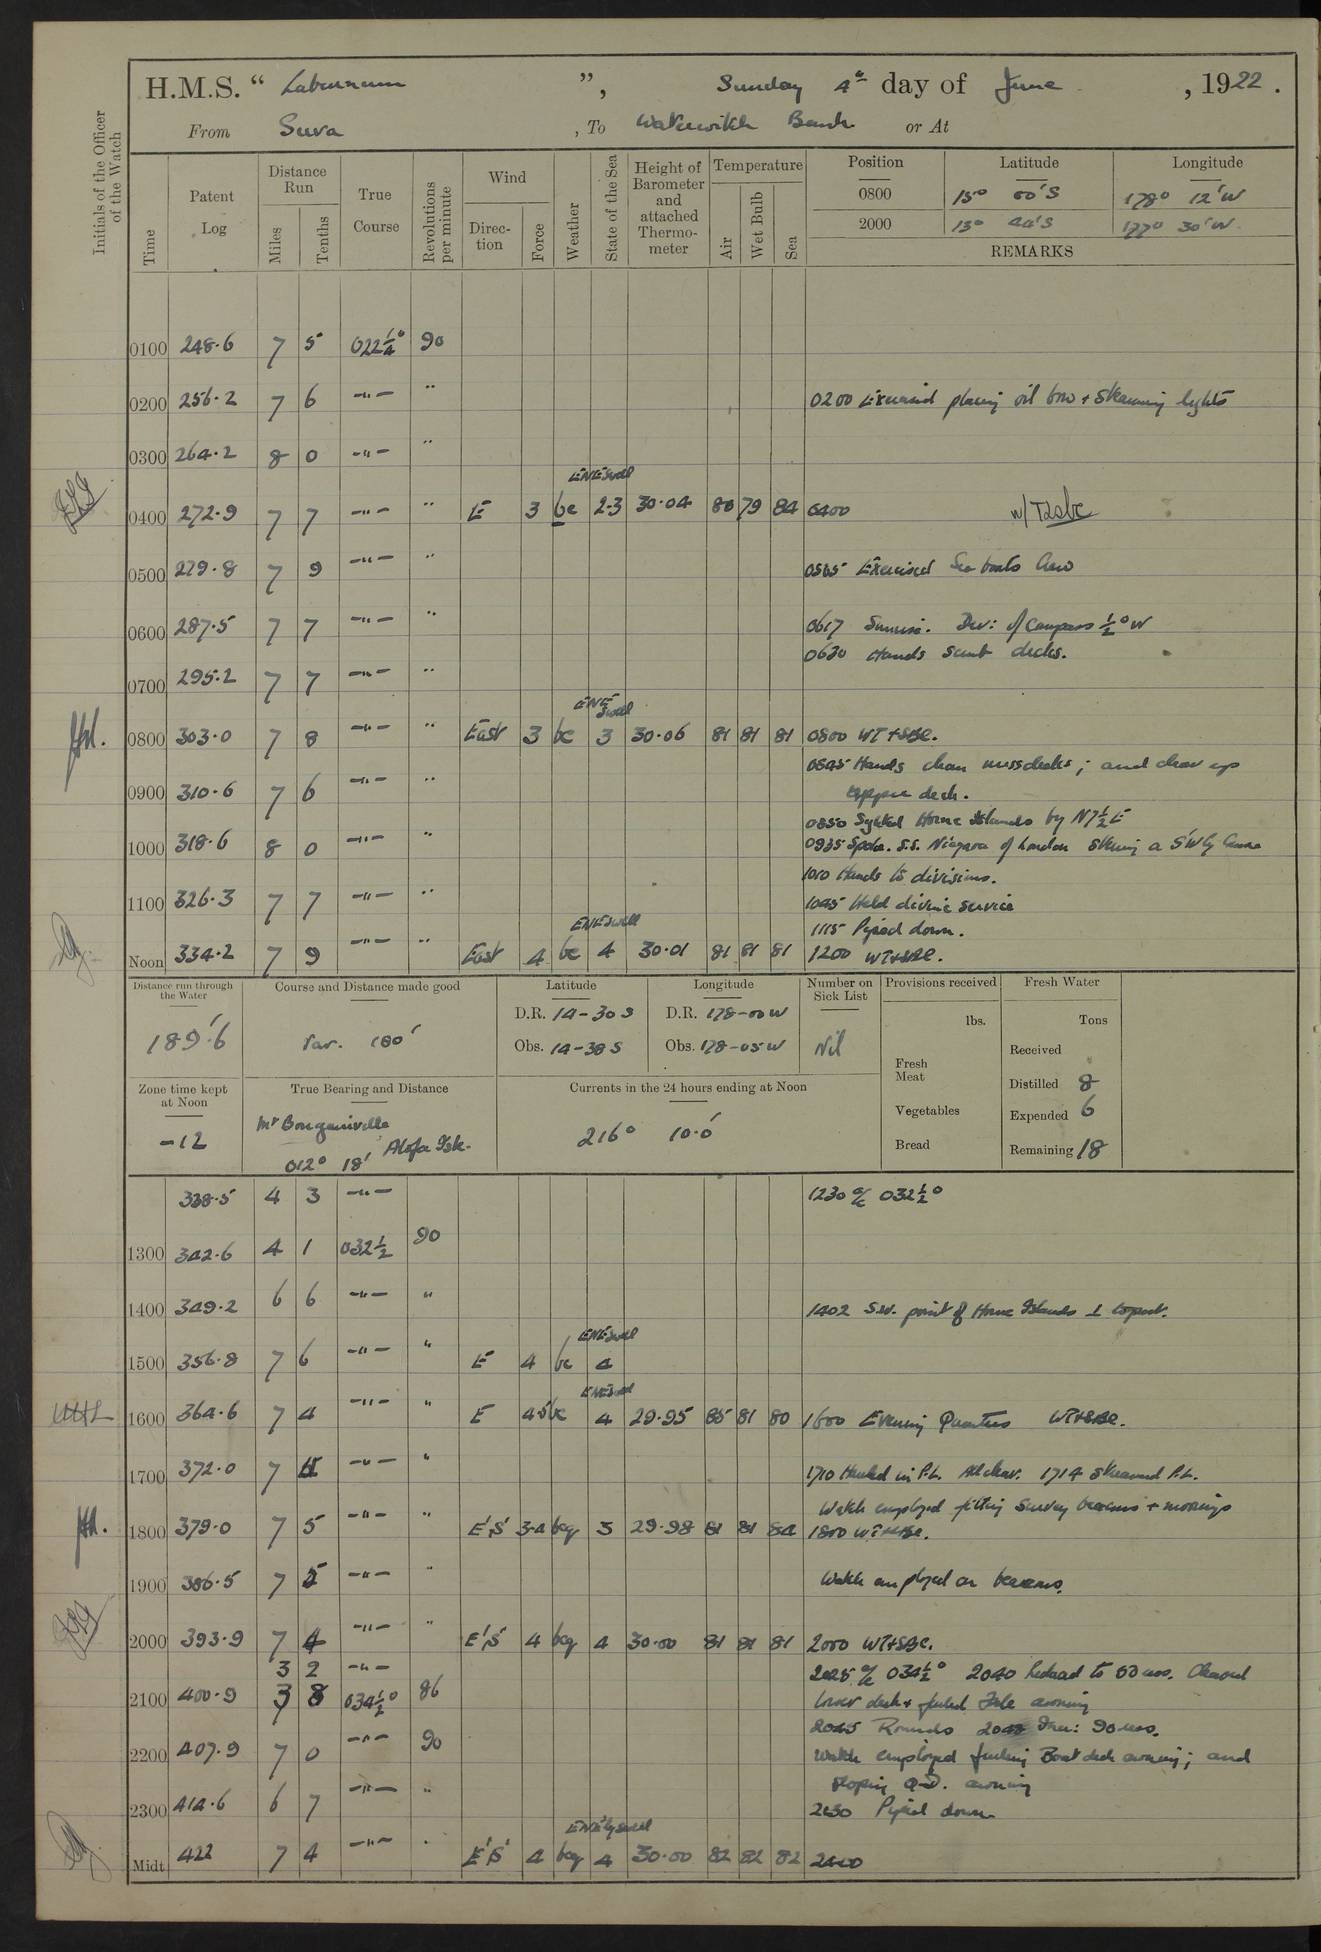 H.M.S. “ Laburnum ”, Sunday 4th day of June, 1922.
From Suva, To Waterwitch Bank or At
Initials of the Officer of the Watch
Time
Patent Log
Distance Run
Miles
Tenths
True Course
Revolutions per minute
Wind
Direction
Force
Weather
State of the Sea
Height of Barometer and attached Thermometer
Temperature
Air
Wet Bulb
Sea
Position Latitude Longitude
0800 15° 00'S 178° 12'W
2000 13° 44'S 177° 30'W
REMARKS
0100 248.6 7 5 022¼° 90
0200 256.2 7 6 -"- " 0200 Exercised placing oil bow + steaming lights
0300 264.2 8 0 -"- "
ENE swell
0400 272.9 7 7 -"- " E 3 bc 2-3 30.04 80 79 84 0400 WT&SBC
0500 279.8 7 9 -"- " 0505 Exercised Sea boats Crew
0600 287.5 7 7 -"- " 0617 Sunrise. Dev: of Compass ½° W
0630 Hands scrub decks.
0700 295.2 7 7 -"- "
ENE swell
0800 303.0 7 8 -"- " East 3 bc 3 30.06 81 81 81 0800 WT+SBC.
0845 Hands clean messdecks; and clear up
0900 310.6 7 6 -"- " upper deck.
0850 Sighted Horne Islands by N7½E
1000 318.6 8 0 -"- " 0935 Spoke. S.S. Niagara of London steering a S'W'ly Course
1010 Hands to divisions.
1100 326.3 7 7 -"- " 1045 Held divine service
ENE swell
1115 Piped down.
Noon 334.2 7 9 -"- " East 4 bc 4 30.01 81 81 81 1200 WT+SBC.
Distance run through the Water
189'.6
Course and Distance made good
Var. 180'
Latitude
D.R. 14-30 S
Obs. 14-38 S
Longitude
D.R. 178-00 W
Obs. 178-05 W
Number on Sick List
Nil
Provisions received
lbs.
Fresh Meat
Vegetables
Bread
Fresh Water
Tons
Received
Distilled 8
Expended 6
Remaining 18
Zone time kept at Noon
-12
True Bearing and Distance
Mt Bougainville
Alofa Isle.
012° 18'
Currents in the 24 hours ending at Noon
216° 10.0'
338.5 4 3 -"- 1230 a/c 032½°
1300 342.6 4 1 032½ 90
1400 349.2 6 6 -"- " 1402 S.W. point of Horne Islands ⊥ to port.
ENE swell
1500 356.8 7 6 -"- " E 4 bc 4
ENE swell
1600 364.6 7 4 -"- " E 4-5 bc 4 29.95 85 81 80 1600 Evening Quarters WT+SBC.
1700 372.0 7 -"- " 1710 Hauled in P.L. All clear. 1714 Streamed P.L.
Watch employed fitting survey beacons + moorings
1800 379.0 7 5 -"- " E'S 3-4 bcq 3 29.98 81 81 84 1800 WT+SBC.
1900 386.5 7 5 -"- " Watch employed on beacons.
2000 393.9 7 4 -"- " E'S 4 bcq 4 30.00 81 81 81 2000 WT+SBC.
3 2 -"- 2025 a/c 034½° 2040 Reduced to 80 revs. Cleared
2100 400.9 3 8 034½° 86 lower deck + furled Fxle awning
2045 Rounds 2048 Incr: 90 revs.
2200 407.9 7 0 -"- 90 Watch employed furling Boat deck awning; and
sloping Q.D. awning
2300 414.6 6 7 -"- " 2130 Piped down
ENE'ly swell
Midt 422 7 4 -"- " E'S 4 bcq 4 30.00 82 82 82 2400